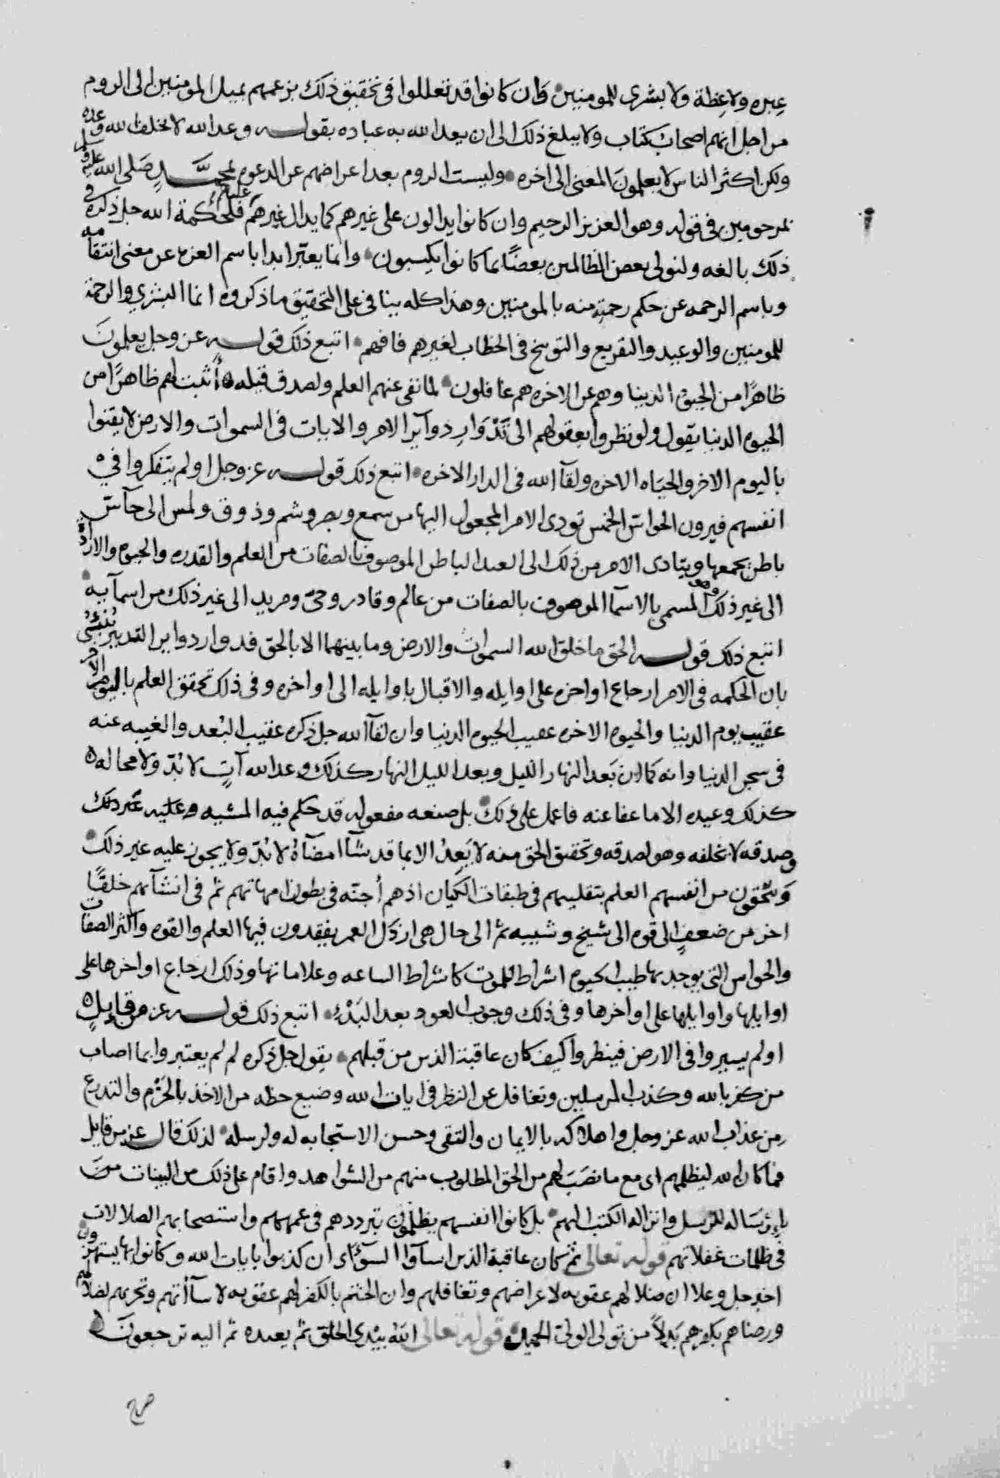 عبره ولا عظة ولا بشرى للمومنين وان كانوا قد تعللوا فى تحقيق ذلك بزعمهم بميل المومنين الى الروم
من اجل انهم اصحاب كتاب ولا يبلغ ذلك الى ان يعد الله به عباده بقوله وعد الله لا يخلف الله وعده
ولكن اكثر الناس لا يعلمون المعنى الى اخره وليست الروم بعد اعراضهم عن الدعوه لمحمد صلى الله عليه وسلم
بمرحومين فى قوله وهو العزيز الرحيم وان كانوا يدالون على غيرهم كما يدال غيرهم عليهم فلحكمة الله جل ذكره فى
ذلك بالغه ولنولى بعض الظالمين بعضًا بما كانوا يكسبون وانما يعتبر ابدا باسم العزه عن معنى انتقامه
وباسم الرحمه عن حكم رحمته منه بالمومنين وهذا كله ينافى على التحقيق ما ذكروه انما البشرى والرحمة
للمومنين والوعيد والتقريع والتوبيخ فى الخطاب لغيرهم فافهم اتبع ذلك قوله عز وجل يعلمون
ظاهرًا من الحيوه الدنيا وهم عن الاخره هم غافلون لما نفى عنهم العلم ولصدق قيله أثبت لهم ظاهرًا من
الحيوه الدنيا يقول ولو نظروا بعقولهم الى تدوار دواير الامر والايات فى السموات والارض لايقنوا
باليوم الاخر والحياه الاخره ولقآ الله فى الدار الاخره اتبع ذلك قوله عز وجل اولم يتفكروا فى
انفسهم فيرون الحواس الخمس تودى الامر المجعول اليها من سمع وبصر وشم وذوق ولمس الى حآسّ
باطن يجمعها ويتادى الامر من ذلك الى العبد الباطن الموصوف بالصفات من العلم والقدره والحيوه والارادة
الى غير ذلك وهو المسمى بالاسمآ الموصوف بالصفات من عالم وقادر وحىّ ومريد الى غير ذلك من اسمآيه
اتبع ذلك قوله الحق ما خلق الله السموات والارض وما بينهما الا بالحق فدوار دواير التدبير
بان الحكمه فى الامر ارجاع اواخره على اوايله والاقبال باوايله الى اواخره وفى ذلك تحقق العلم باليوم الاخر
عقيب يوم الدنيا والحيوه الاخره عقيب الحيوه الدنيا وان لقآ الله جل ذكره عقيب البعد والغيبه عنه
فى سجن الدنيا وانه كما ان بعد النهار الليل وبعد الليل النهار كذلك وعد الله آتٍ لا بدّ ولا محاله
كذلك وعيده الا ما عفا عنه فاعمل على ذلك بل صنعه مفعوله قد حكم فيه المشيه وعليه غير ذلك
وصدقه لا يخلفه وهو لصدقه وتحقيق الحق منه لا يَعِدُ الا بما قد شآ امضآه لا بدّ ولا يجوز عليه غير ذلك
ويتحققون من انفسهم العلم بتقليبهم فى طبقات الكيان اذ هم أجنّه فى بطون امهاتهم ثم فى انشآئهم خلقًا
اخر من ضعفٍ الى قوه الى شيخ وشيبه ثم الى حال هى ارذل العمر يفقدون فيها العلم والقوه واكثر الصفات
والحواس التى يوجد بها طيب الحيوه اشراط للموت كاشراط الساعه وعلاماتها وذلك ارجاع اواخرها على
اوايلها واوايلها على اواخرها وفى ذلك وجوب العود بعد البَدْء اتبع ذلك قوله عز من قايل
اولم يسيروا فى الارض فينظروا كيف كان عاقبة الذين من قبلهم يقول جل ذكره لم لم يعتبروا بما اصاب
من كفر بالله وكذب المرسلين وتغافل عن النظر فى ايات الله وضيع حظه من الاخذ بالحزم والتدرع
من عذاب الله عز وجل واهلاكه بالايمان والتقى وحسن الاستجابه له ولرسله لذلك قال عز من قايل
فما كان الله ليظلمهم اى مع ما نصَبَ لهم من الحق المطلوب منهم من الشواهد واقام على ذلك من البينات
بارساله للرسل وانزاله الكتب اليهم بل كانوا انفسهم يظلمون بترددهم فى عمههم واستصحابهم الضلالات
فى ظلمات غفلاتهم قوله تعالى ثم كان عاقبة الذين اسآوا السوآى ان كذبوا بايات الله وكانوا بها يستهزون
اخبر جل وعلا ان ضلالهم عقوبه لاعراضهم وتغافلهم وان الختم بالكفر لهم عقوبه لاسآتهم وتحريهم لضلالهم
ورضاهم بكفرهم بَدَلاً من تولى الولىّ الحميد قوله تعالى الله يبدى الخلق ثم يعيده ثم اليه ترجعون